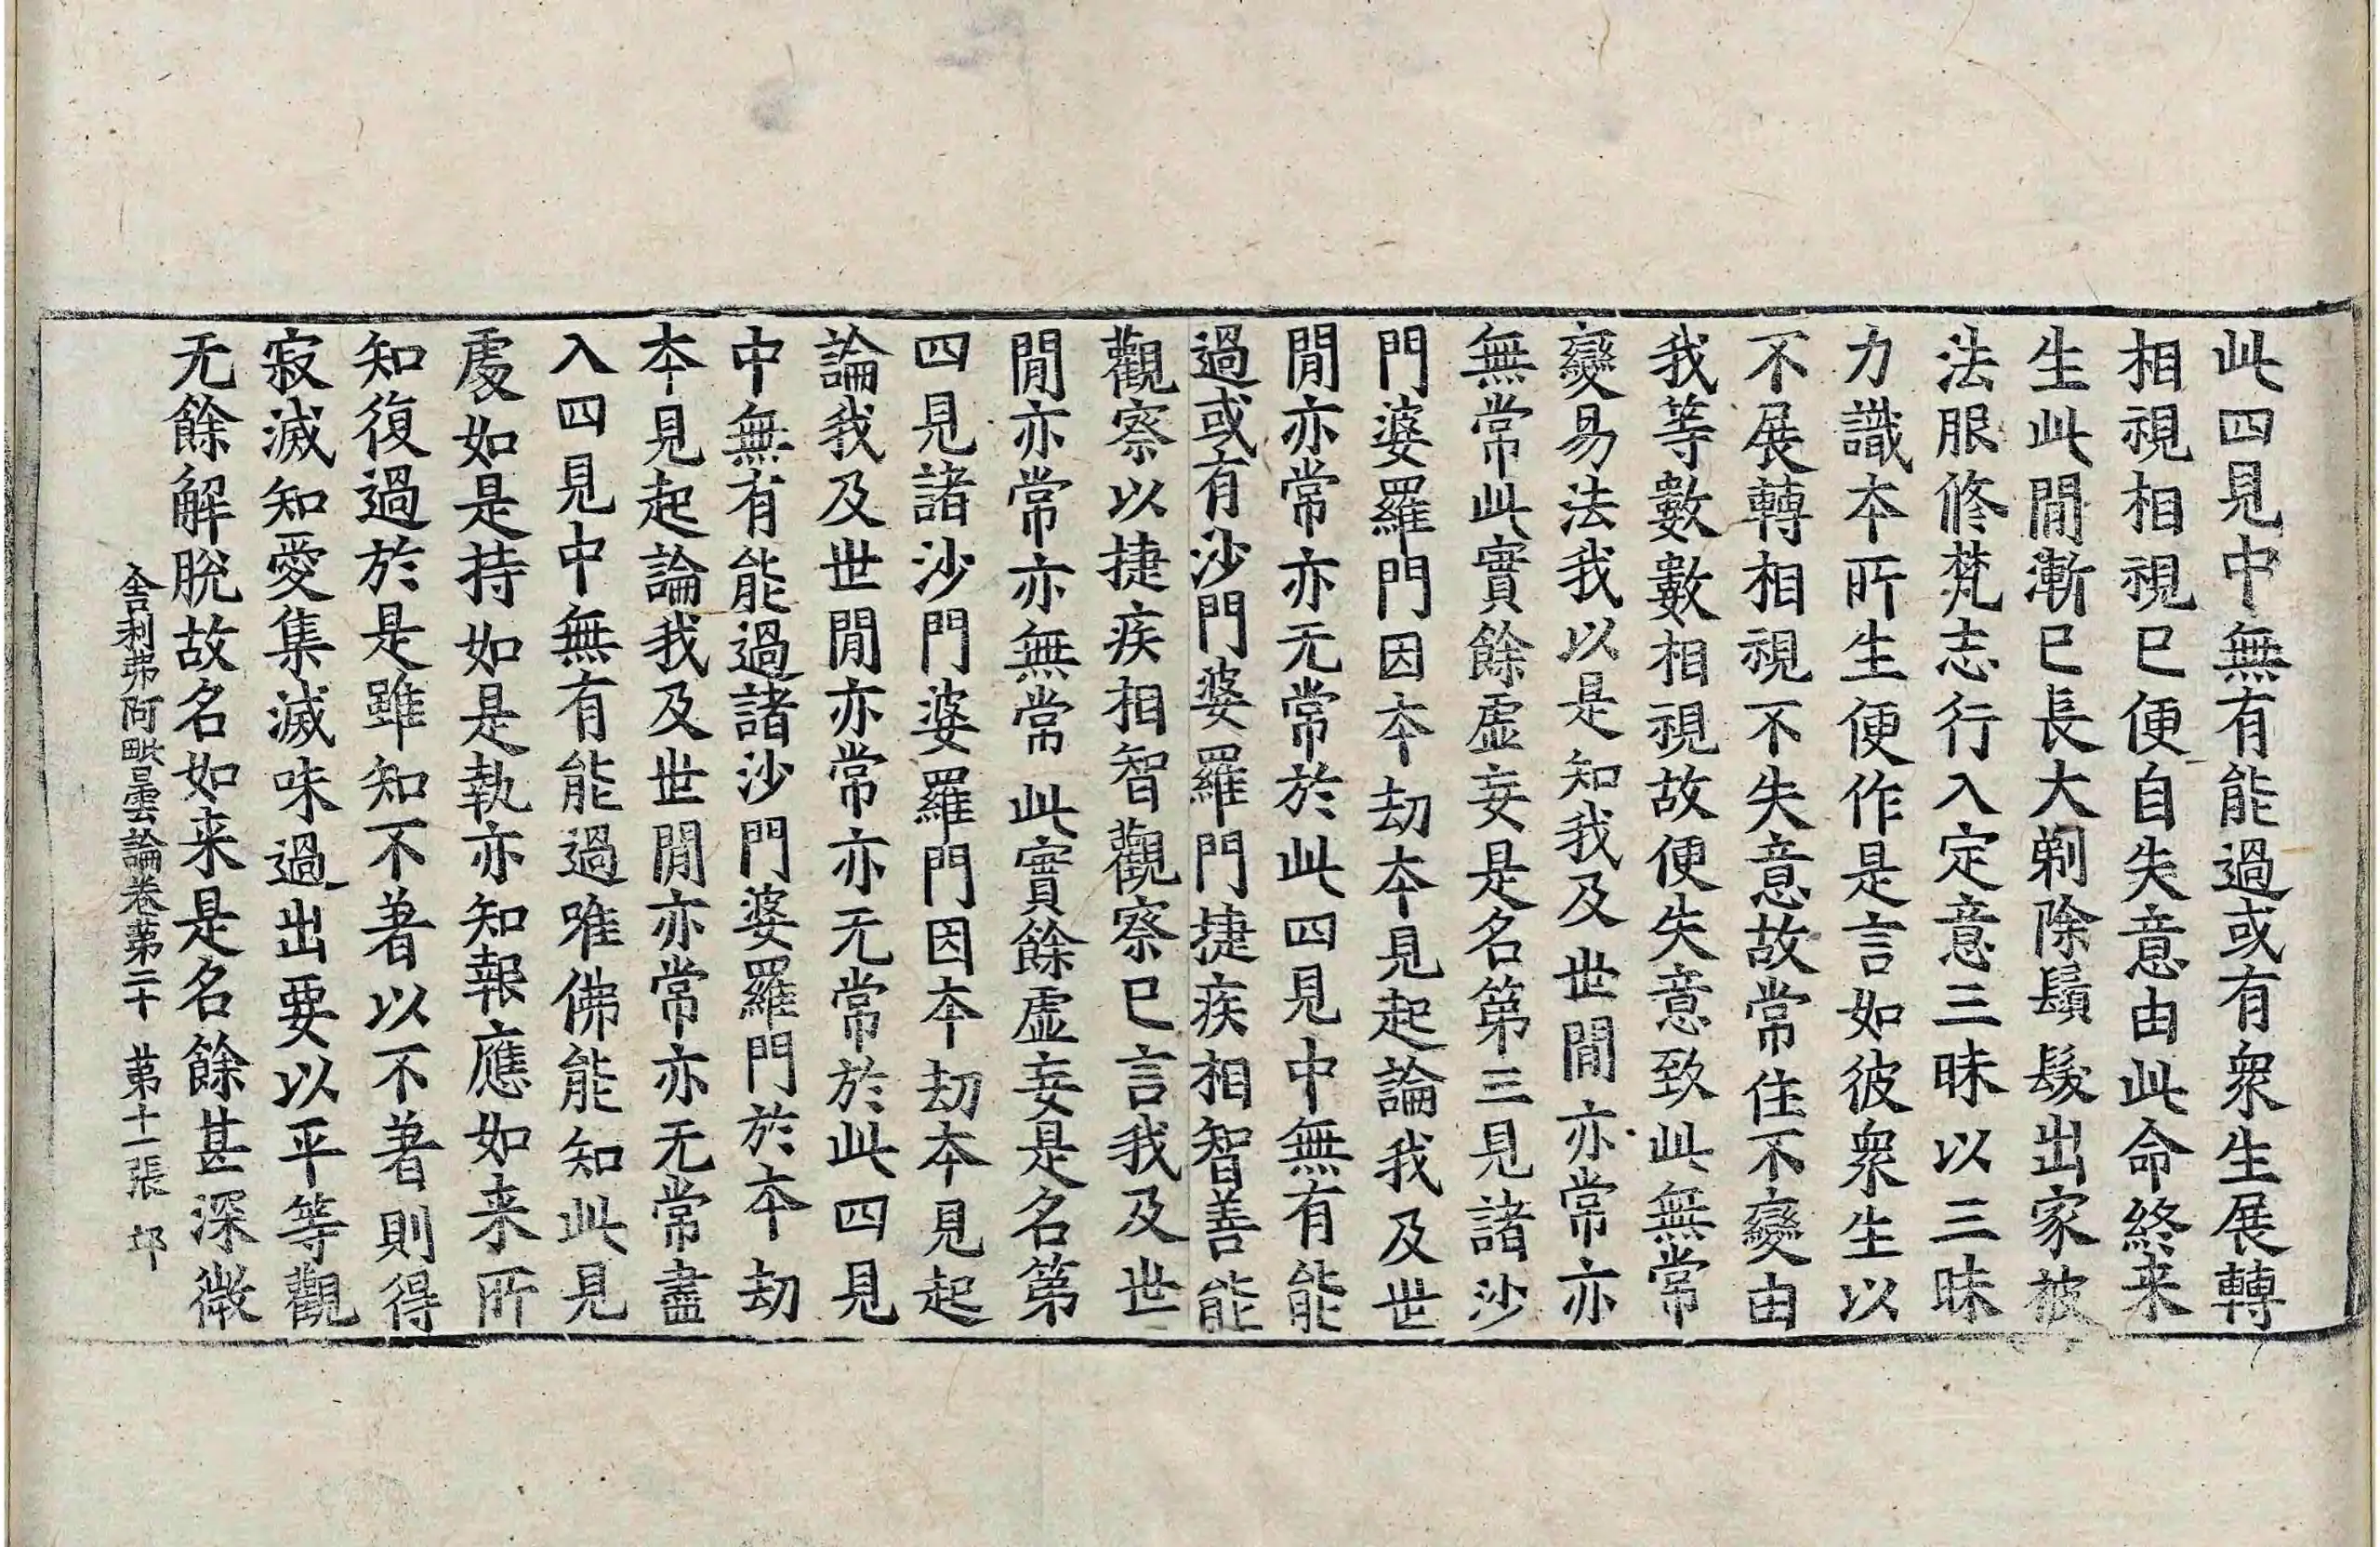 此四見中無有能過或有衆生展轉
相視相視已便自失意由此命終来
生此間漸已長大剃除鬚髮出家被
法服修梵志行入定意三昧以三昧
力識本所生便作是言如彼衆生以
不展轉相視不失意故常住不變由
我等數數相視故便失意致此無常
變易法我以是知我及世間亦常亦
無常此實餘虛妄是名第三見諸沙
門婆羅門因本劫本見起論我及世
間亦常亦无常於此四見中無有能
過或有沙門婆羅門捷疾相智善能
觀察以捷疾相智觀察已言我及世
間亦常亦無常此實餘虛妄是名第
四見諸沙門婆羅門因本劫本見起
論我及世間亦常亦无常於此四見
中無有能過諸沙門婆羅門於本劫
本見起論我及世間亦常亦无常盡
入四見中無有能過唯佛能知此見
處如是持如是執亦知報應如来所
知復過於是雖知不著以不著則得
寂滅知愛集滅味過出要以平等觀
无餘解脫故名如来是名餘甚深微
舍利弗阿毗曇論卷第二十 第十一張 邙